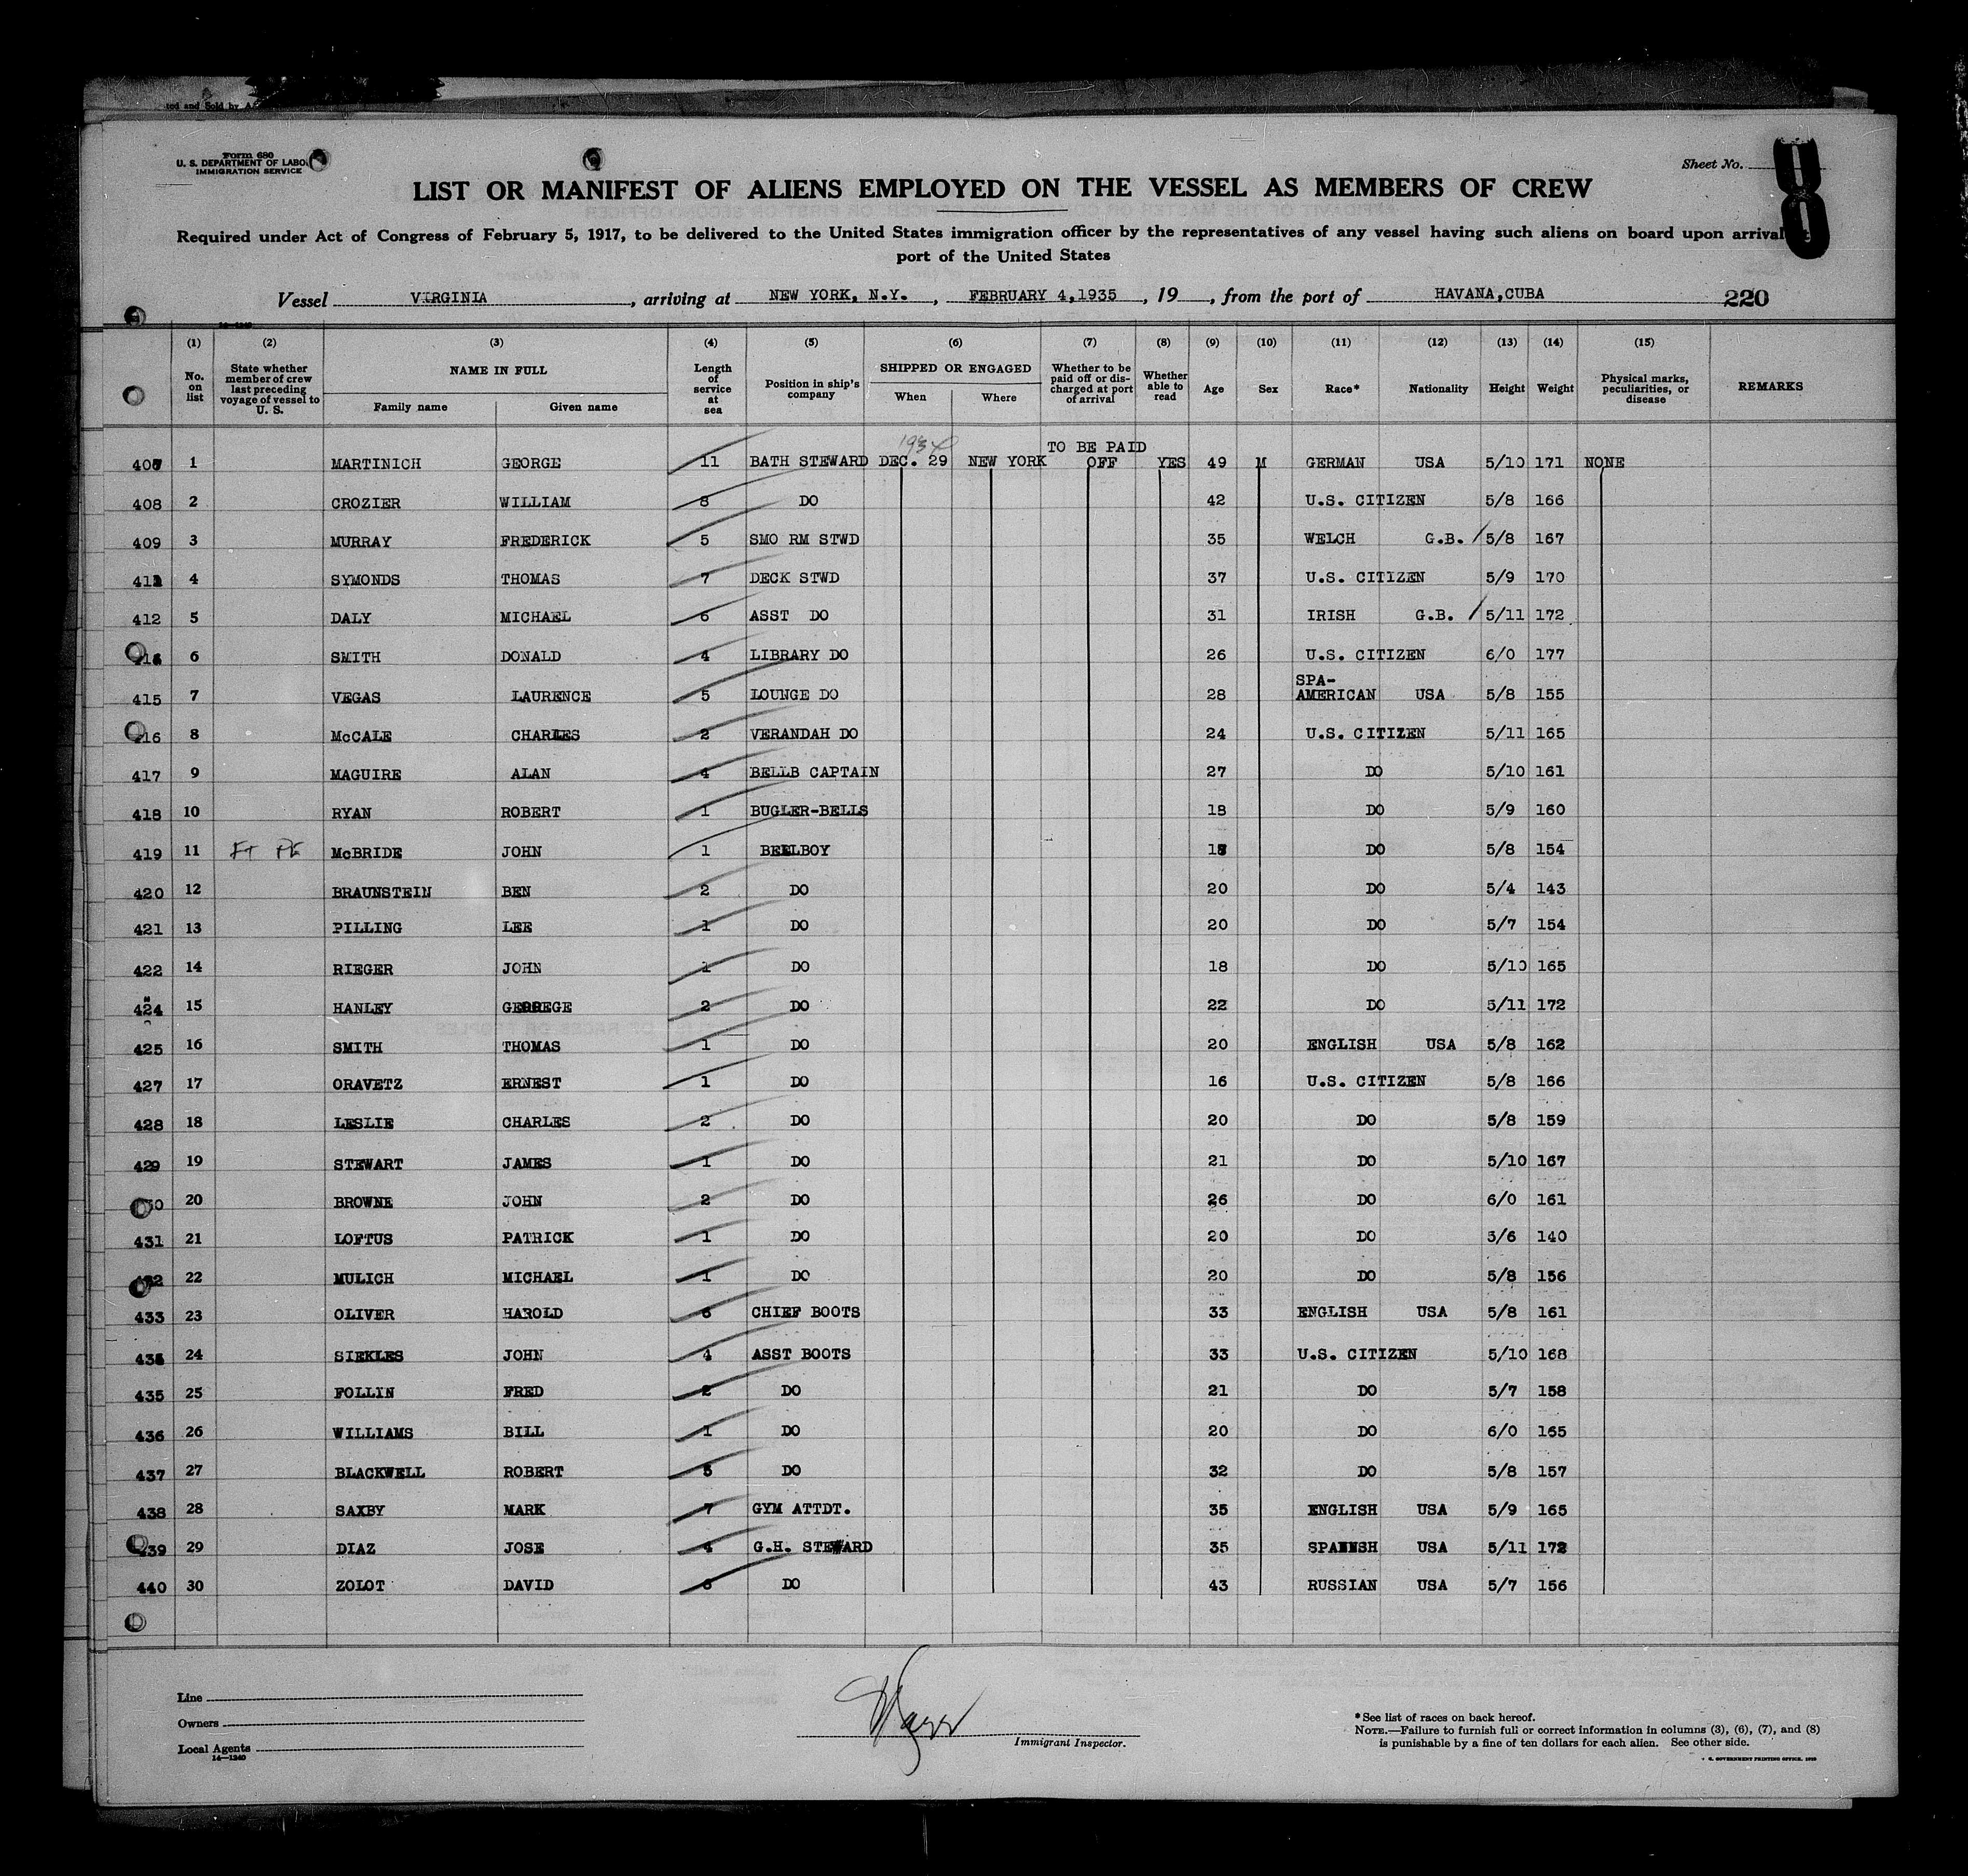 ted and Sold by A
Form 680
U. S. DEPARTMENT OF LABO
IMMIGRATION SERVICE
Sheet No.
LIST OR MANIFEST OF ALIENS EMPLOYED ON THE VESSEL AS MEMBERS OF CREW
Required under Act of Congress of February 5, 1917, to be delivered to the United States immigration officer by the representatives of any vessel having such aliens on board upon arrival
port of the United States
Vessel VIRGINIA, arriving at NEW YORK, N.Y., FEBRUARY 4,1935, 19, from the port of HAVANA,CUBA 220
(1) (2) (3) (4) (5) (6) (7) (8) (9) (10) (11) (12) (13) (14) (15)
No. on list State whether member of crew last preceding voyage of vessel to U. S. NAME IN FULL Family name Given name Length of service at sea Position in ship's company SHIPPED OR ENGAGED When Where Whether to be paid off or discharged at port of arrival Whether able to read Age Sex Race* Nationality Height Weight Physical marks, peculiarities, or disease REMARKS
1934 TO BE PAID
407 1 MARTINICH GEORGE 11 BATH STEWARD DEC. 29 NEW YORK OFF YES 49 M GERMAN USA 5/10 171 NONE
408 2 CROZIER WILLIAM 8 DO 42 U.S. CITIZEN 5/8 166
409 3 MURRAY FREDERICK 5 SMO RM STWD 35 WELCH G.B. 5/8 167
4 SYMONDS THOMAS 7 DECK STWD 37 U.S. CITIZEN 5/9 170
412 5 DALY MICHAEL 6 ASST DO 31 IRISH G.B. 5/11 172
6 SMITH DONALD 4 LIBRARY DO 26 U.S. CITIZEN 6/0 177
SPA-
415 7 VEGAS LAURENCE 5 LOUNGE DO 28 AMERICAN USA 5/8 155
16 8 McCALE CHARLES 2 VERANDAH DO 24 U.S. CITIZEN 5/11 165
417 9 MAGUIRE ALAN 4 BELLB CAPTAIN 27 DO 5/10 161
418 10 RYAN ROBERT 1 BUGLER-BELLS 18 DO 5/9 160
419 11 McBRIDE JOHN 1 BELLBOY DO 5/8 154
420 12 BRAUNSTEIN BEN 2 DO 20 DO 5/4 143
421 13 PILLING LEE 1 DO 20 DO 5/7 154
422 14 RIEGER JOHN 1 DO 18 DO 5/10 165
424 15 HANLEY 2 DO 22 DO 5/11 172
425 16 SMITH THOMAS 1 DO 20 ENGLISH USA 5/8 162
427 17 ORAVETZ ERNEST 1 DO 16 U.S. CITIZEN 5/8 166
428 18 LESLIE CHARLES 2 DO 20 DO 5/8 159
429 19 STEWART JAMES 1 DO 21 DO 5/10 167
20 BROWNE JOHN 2 DO 26 DO 6/0 161
431 21 LOFTUS PATRICK 1 DO 20 DO 140
22 MULICH MICHAEL 1 DO 20 DO 5/8 156
433 23 OLIVER HAROLD 6 CHIEF BOOTS 33 ENGLISH USA 5/8 161
24 SIEKLES JOHN 4 ASST BOOTS 33 U.S. CITIZEN 5/10 168
435 25 FOLLIN FRED 2 DO 21 DO 5/7 158
436 26 WILLIAMS BILL 1 DO 20 DO 6/0 165
437 27 BLACKWELL ROBERT DO 32 DO 5/8 157
438 28 SAXBY MARK 7 GYM ATTDT. 35 ENGLISH USA 5/9 165
439 29 DIAZ JOSE 4 G.H. STEWARD 35 SPANISH USA 5/11 172
440 30 ZOLOT DAVID DO 43 RUSSIAN USA 5/7 156
Line
Owners
Local Agents
14—1240
Immigrant Inspector.
*See list of races on back hereof.
NOTE.—Failure to furnish full or correct information in columns (3), (6), (7), and (8)
is punishable by a fine of ten dollars for each alien. See other side.